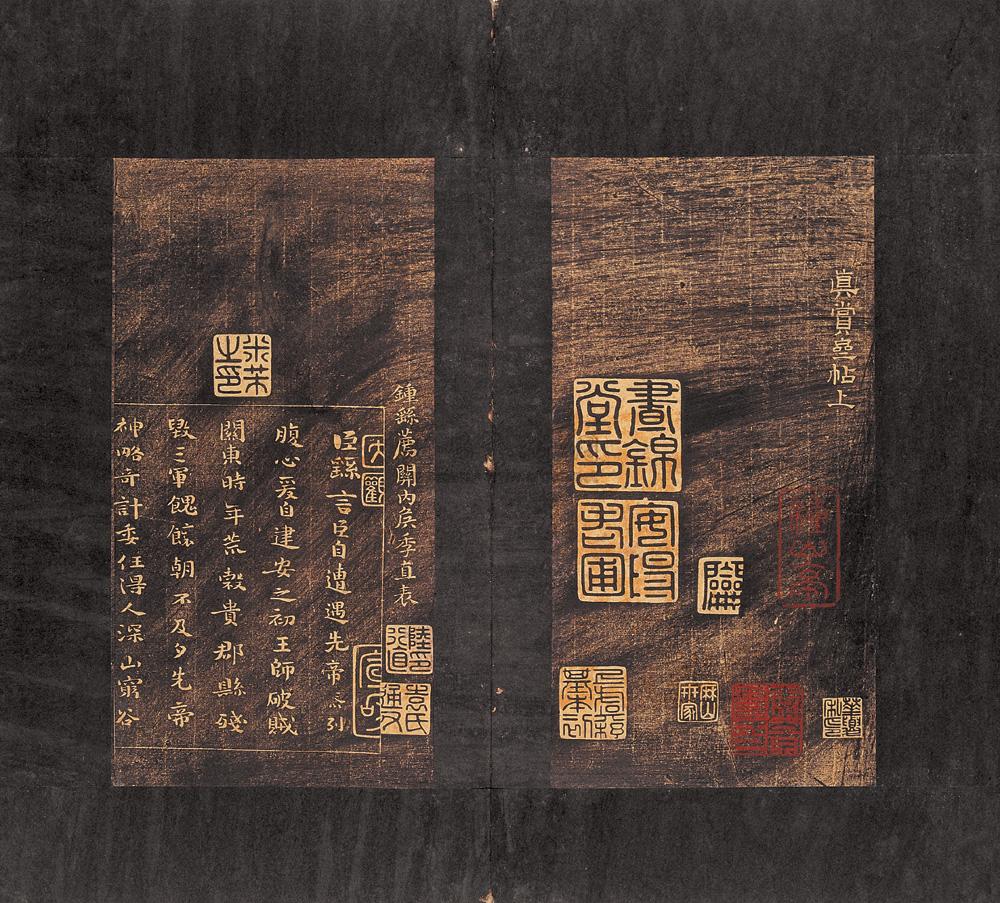 真賞齋帖上
晝錦堂印
安國
米芾之印
鍾繇薦關內矦季直表
臣繇言臣自遭遇先帝忝列
腹心爰自建安之初王師破賊
關東時年荒穀貴郡縣殘
毀三軍餽饟朝不及夕先帝
神略奇計委任得人深山窮谷